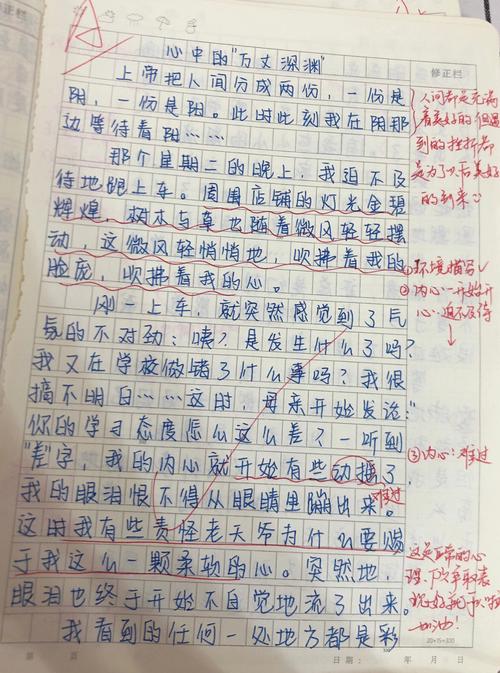 A
心中的"万丈深渊"
修正栏
上帝把人间分成两份，一份是
阴，一份是阳。此时此刻我在阴那
边等待着阳……
人间都是充满
着美好的但遇
到的挫折都
是为了以后美好
的到来
那个星期二的晚上，我迫不及
待地跑上车。周围店铺的灯光金碧
辉煌，树木与草也随着微风轻轻摆
动，这微风轻悄悄地，吹拂着我的
脸庞，吹拂着我的心。
①环境描写√
②内心：一开始开
心、迫不及待
刚一上车，就突然感觉到了气
氛的不对劲：咦？是发生什么了吗？
我又在学校做错了什么事吗？我很
搞不明白……这时，母亲开始发话："
你的学习态度怎么这么差？一听到
"差"字，我的内心就开始有些动摇了，
难过
我的眼泪恨不得从眼睛里蹦出来。
③内心：难过
这时我有些责怪老天爷为什么要赐
于我这么一颗柔软的心。突然地，
眼泪也终于开始不自觉地流了出来。
我看到的任何一处地方都是彩
这是正常的心
理，下次争取表
现好
加油！
20×15=300
第 页
日期： 年 月 日